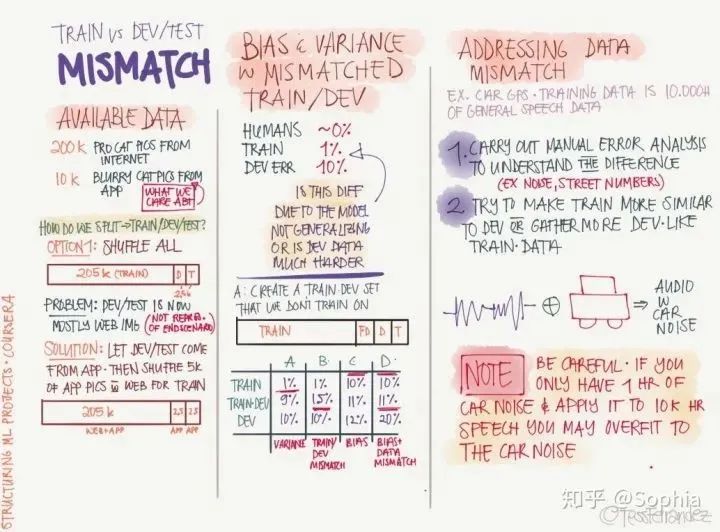 TRAIN vs DEV/TEST
MISMATCH
AVAILABLE DATA
200k PRO CAT PICS FROM
INTERNET
10k BLURRY CAT PICS FROM
APP
WHAT WE
CARE ABT
HOW DO WE SPLIT → TRAIN/DEV/TEST?
OPTION 1: SHUFFLE ALL
205k (TRAIN) D T
PROBLEM: DEV/TEST IS NOW
MOSTLY WEB IMG (NOT REPR.
OF END SCENARIO)
SOLUTION: LET DEV/TEST COME
FROM APP. THEN SHUFFLE 5K
OF APP PICS W WEB FOR TRAIN
205k 2.5 2.5
WEB+APP APP APP
BIAS & VARIANCE
W MISMATCHED
TRAIN/DEV
HUMANS ~0%
TRAIN 1%
DEV ERR 10%
IS THIS DIFF
DUE TO THE MODEL
NOT GENERALIZING
OR IS DEV DATA
MUCH HARDER
A: CREATE A TRAIN-DEV SET
THAT WE DON'T TRAIN ON
TRAIN D T
A B C D
TRAIN 1% 1% 10% 10%
TRAIN-DEV 9% 1.5% 11% 11%
DEV 10% 10% 12% 20%
VARIANCE TRAIN/ BIAS BIAS+
DEV DATA
MISMATCH MISMATCH
ADDRESSING DATA
MISMATCH
EX. CAR GPS · TRAINING DATA IS 10.000H
OF GENERAL SPEECH DATA
1. CARRY OUT MANUAL ERROR ANALYSIS
TO UNDERSTAND THE DIFFERENCE
(EX NOISE, STREET NUMBERS)
2. TRY TO MAKE TRAIN MORE SIMILAR
TO DEV OR GATHER MORE DEV-LIKE
TRAIN-DATA
AUDIO
W
CAR
NOISE
NOTE
BE CAREFUL · IF YOU
ONLY HAVE 1 HR OF
CAR NOISE & APPLY IT TO 10K HR
SPEECH YOU MAY OVERFIT TO
THE CAR NOISE
STRUCTURING ML PROJECTS · COURSERA
知乎 @Sophia
@TessFerrandez